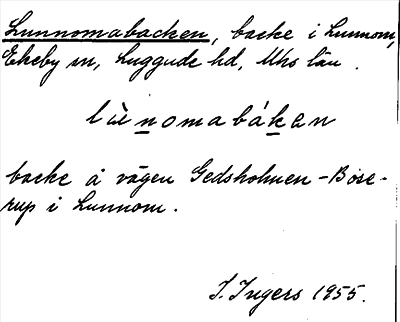 Lunnomabacken, backe i Lunnom,
Ekeby sn, Luggude hd, Mhs län.
lùnomabáken
backe å vägen Gedsholmen-Böse-
rup i Lunnom.
I. Ingers 1955.